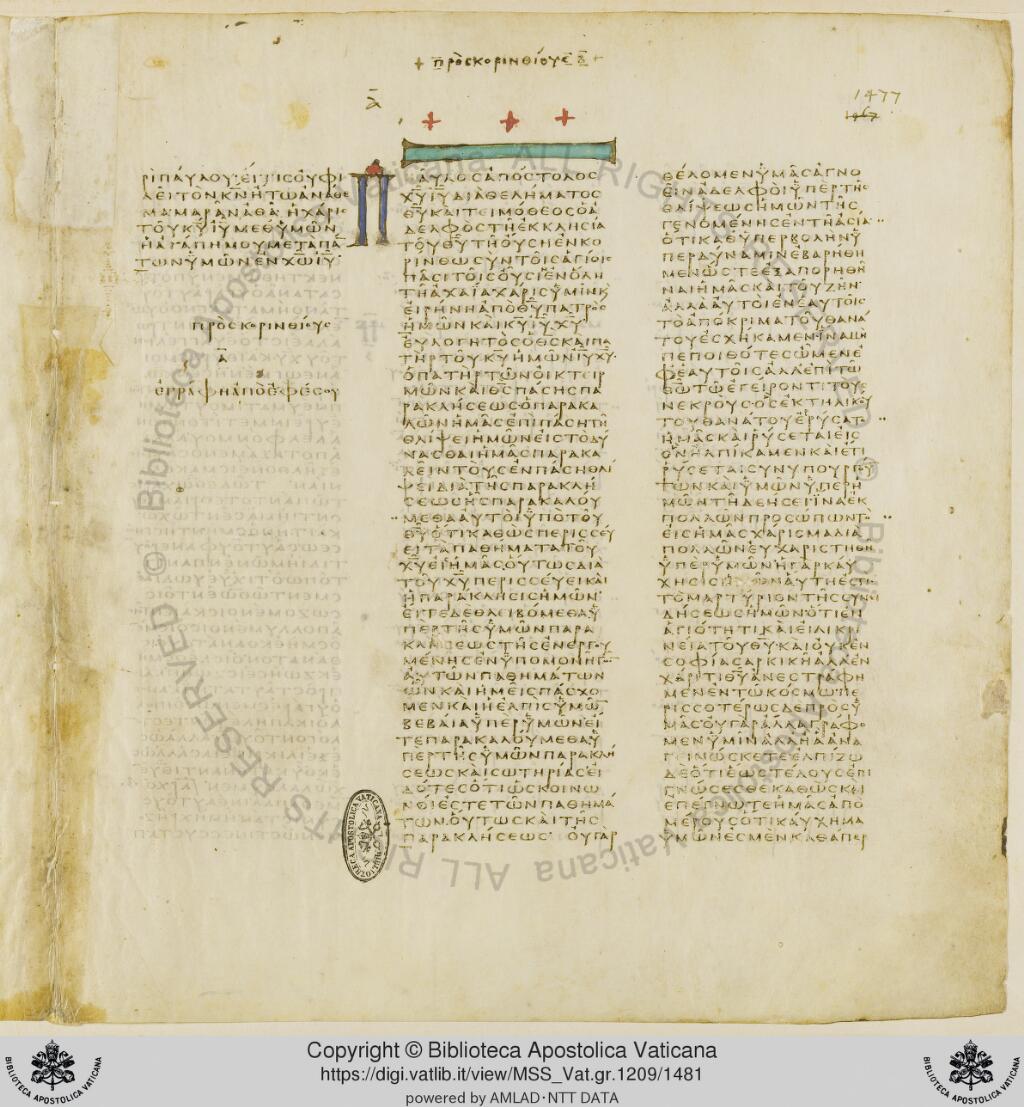 + ΠΡΟϹ ΚΟΡΙΝΘΙΟΥϹ Β̅ +
Α̅
1477
1467
ΡΙΠΑΥΛΟΥ·ΕΙΤΙϹΟΥΦΙ
ΛΕΙΤΟΝΚ̅Ν̅ΗΤΩΑΝΑΘΕ
ΜΑΜΑΡΑΝΑΘΑ·ΗΧΑΡΙϹ
ΤΟΥΚ̅Υ̅Ι̅Υ̅ΜΕΘΥΜΩΝ
ΗΑΓΑΠΗΜΟΥΜΕΤΑΠΑ̅
ΤΩΝΥΜΩΝΕΝΧ̅Ω̅Ι̅Υ̅·
ΠΡΟϹΚΟΡΙΝΘΙΟΥϹ
Α̅
ΕΓΡΑΦΗΑΠΟΕΦΕϹΟΥ
ΠΑΥΛΟϹΑΠΟϹΤΟΛΟϹ
Χ̅Υ̅Ι̅Υ̅ΔΙΑΘΕΛΗΜΑΤΟϹ
Θ̅Υ̅ΚΑΙΤΕΙΜΟΘΕΟϹΟΑ
ΔΕΛΦΟϹΤΗΕΚΚΛΗϹΙΑ
ΤΟΥΘ̅Υ̅ΤΗΟΥϹΗΕΝΚΟ
ΡΙΝΘΩϹΥΝΤΟΙϹΑΓΙΟΙϹ
ΠΑϹΙΤΟΙϹΟΥϹΙΕΝΟΛΗ
ΤΗΑΧΑΙΑΧΑΡΙϹΥΜΙΝΚ
ΕΙΡΗΝΗΑΠΟΘ̅Υ̅ΠΑΤΡΟϹ
ΗΜΩΝΚΑΙΚ̅Υ̅Ι̅Υ̅Χ̅Υ̅
ΕΥΛΟΓΗΤΟϹΟΘ̅Ϲ̅ΚΑΙΠΑ
ΤΗΡΤΟΥΚ̅Υ̅ΗΜΩΝΙ̅Υ̅Χ̅Υ̅·
ΟΠΑΤΗΡΤΩΝΟΙΚΤΕΙΡ
ΜΩΝΚΑΙΘ̅Ϲ̅ΠΑϹΗϹΠΑ
ΡΑΚΛΗϹΕΩϹ·ΟΠΑΡΑΚΑ
ΛΩΝΗΜΑϹΕΠΙΠΑϹΗΤΗ
ΘΛΙΨΕΙΗΜΩΝΕΙϹΤΟΔΥ
ΝΑϹΘΑΙΗΜΑϹΠΑΡΑΚΑ
ΛΕΙΝΤΟΥϹΕΝΠΑϹΗΘΛΙ
ΨΕΙΔΙΑΤΗϹΠΑΡΑΚΛΗ
ϹΕΩϹΗϹΠΑΡΑΚΑΛΟΥ
ΜΕΘΑΑΥΤΟΙΥΠΟΤΟΥ
Θ̅Υ̅ΟΤΙΚΑΘΩϹΠΕΡΙϹϹΕΥ
ΕΙΤΑΠΑΘΗΜΑΤΑΤΟΥ
Χ̅Υ̅ΕΙϹΗΜΑϹΟΥΤΩϹΔΙΑ
ΤΟΥΧ̅Υ̅ΠΕΡΙϹϹΕΥΕΙΚΑΙ
ΗΠΑΡΑΚΛΗϹΙϹΗΜΩΝ
ΕΙΤΕΔΕΘΛΕΙΒΟΜΕΘΑΥ
ΠΕΡΤΗϹΥΜΩΝΠΑΡΑ
ΚΛΗϹΕΩϹΤΗϹΕΝΕΡΓΟΥ
ΜΕΝΗϹΕΝΥΠΟΜΟΝΗΤΩ̅
ΑΥΤΩΝΠΑΘΗΜΑΤΩΝ
ΩΝΚΑΙΗΜΕΙϹΠΑϹΧΟ
ΜΕΝΚΑΙΗΕΛΠΙϹΥΜΩ̅
ΒΕΒΑΙΑΥΠΕΡΥΜΩΝΕΙ
ΤΕΠΑΡΑΚΑΛΟΥΜΕΘΑΥ
ΠΕΡΤΗϹΥΜΩΝΠΑΡΑΚΛΗ
ϹΕΩϹΚΑΙϹΩΤΗΡΙΑϹΕΙ
ΔΟΤΕϹΟΤΙΩϹΚΟΙΝΩ
ΝΟΙΕϹΤΕΤΩΝΠΑΘΗΜΑ
ΤΩΝ·ΟΥΤΩϹΚΑΙΤΗϹ
ΠΑΡΑΚΛΗϹΕΩϹ· ΟΥΓΑΡ
ΘΕΛΟΜΕΝΥΜΑϹΑΓΝΟ
ΕΙΝΑΔΕΛΦΟΙΥΠΕΡΤΗϹ
ΘΛΙΨΕΩϹΗΜΩΝΤΗϹ
ΓΕΝΟΜΕΝΗϹΕΝΤΗΑϹΙΑ
ΟΤΙΚΑΘΥΠΕΡΒΟΛΗΝΥ
ΠΕΡΔΥΝΑΜΙΝΕΒΑΡΗΘΗ
ΜΕΝΩϹΤΕΕΞΑΠΟΡΗΘΗ
ΝΑΙΗΜΑϹΚΑΙΤΟΥΖΗΝ·
ΑΛΛΑΑΥΤΟΙΕΝΕΑΥΤΟΙϹ
ΤΟΑΠΟΚΡΙΜΑΤΟΥΘΑΝΑ
ΤΟΥΕϹΧΗΚΑΜΕΝΙΝΑΜΗ
ΠΕΠΟΙΘΟΤΕϹΩΜΕΝΕ
ΦΕΑΥΤΟΙϹΑΛΛΕΠΙΤΩ
Θ̅Ω̅ΤΩΕΓΕΙΡΟΝΤΙΤΟΥϹ
ΝΕΚΡΟΥϹ·ΟϹΕΚΤΗΛΙΚΟΥ
ΤΟΥΘΑΝΑΤΟΥΕΡΥϹΑΤ
ΗΜΑϹΚΑΙΡΥϹΕΤΑΙΕΙϹ
ΟΝΗΛΠΙΚΑΜΕΝΚΑΙΕΤΙ
ΡΥϹΕΤΑΙϹΥΝΥΠΟΥΡΓΟΥ̅
ΤΩΝΚΑΙΥΜΩΝΥΠΕΡΗ
ΜΩΝΤΗΔΕΗϹΕΙΙΝΑΕΚ
ΠΟΛΛΩΝΠΡΟϹΩΠΩΝΤΟ
ΕΙϹΗΜΑϹΧΑΡΙϹΜΑΔΙΑ
ΠΟΛΛΩΝΕΥΧΑΡΙϹΤΗΘΗ
ΥΠΕΡΥΜΩΝΗΓΑΡΚΑΥ
ΧΗϹΙϹΗΜΩΝΑΥΤΗΕϹΤΙ
ΤΟΜΑΡΤΥΡΙΟΝΤΗϹϹΥΝΙ
ΔΗϹΕΩϹΗΜΩΝ·ΟΤΙΕΝ
ΑΓΙΟΤΗΤΙΚΑΙΕΙΛΙΚΡΙ
ΝΕΙΑΤΟΥΘ̅Υ̅·ΚΑΙΟΥΚΕΝ
ϹΟΦΙΑϹΑΡΚΙΚΗΑΛΛΕΝ
ΧΑΡΙΤΙΘ̅Υ̅ΑΝΕϹΤΡΑΦΗ
ΜΕΝΕΝΤΩΚΟϹΜΩ·ΠΕ
ΡΙϹϹΟΤΕΡΩϹΔΕΠΡΟϹΥ
ΜΑϹΟΥΓΑΡΑΛΛΑΓΡΑΦΟ
ΜΕΝΥΜΙΝΑΛΛΗΑΑΝΑ
ΓΕΙΝΩϹΚΕΤΕΕΛΠΙΖΩ
ΔΕΟΤΙΕΩϹΤΕΛΟΥϹΕΠΙ
ΓΝΩϹΕϹΘΕΚΑΘΩϹΚΑΙ
ΕΠΕΓΝΩΤΕΗΜΑϹΑΠΟ
ΜΕΡΟΥϹΟΤΙΚΑΥΧΗΜΑ
ΥΜΩΝΕϹΜΕΝΚΑΘΑΠΕΡ
Copyright © Biblioteca Apostolica Vaticana
https://digi.vatlib.it/view/MSS_Vat.gr.1209/1481
powered by AMLAD·NTT DATA